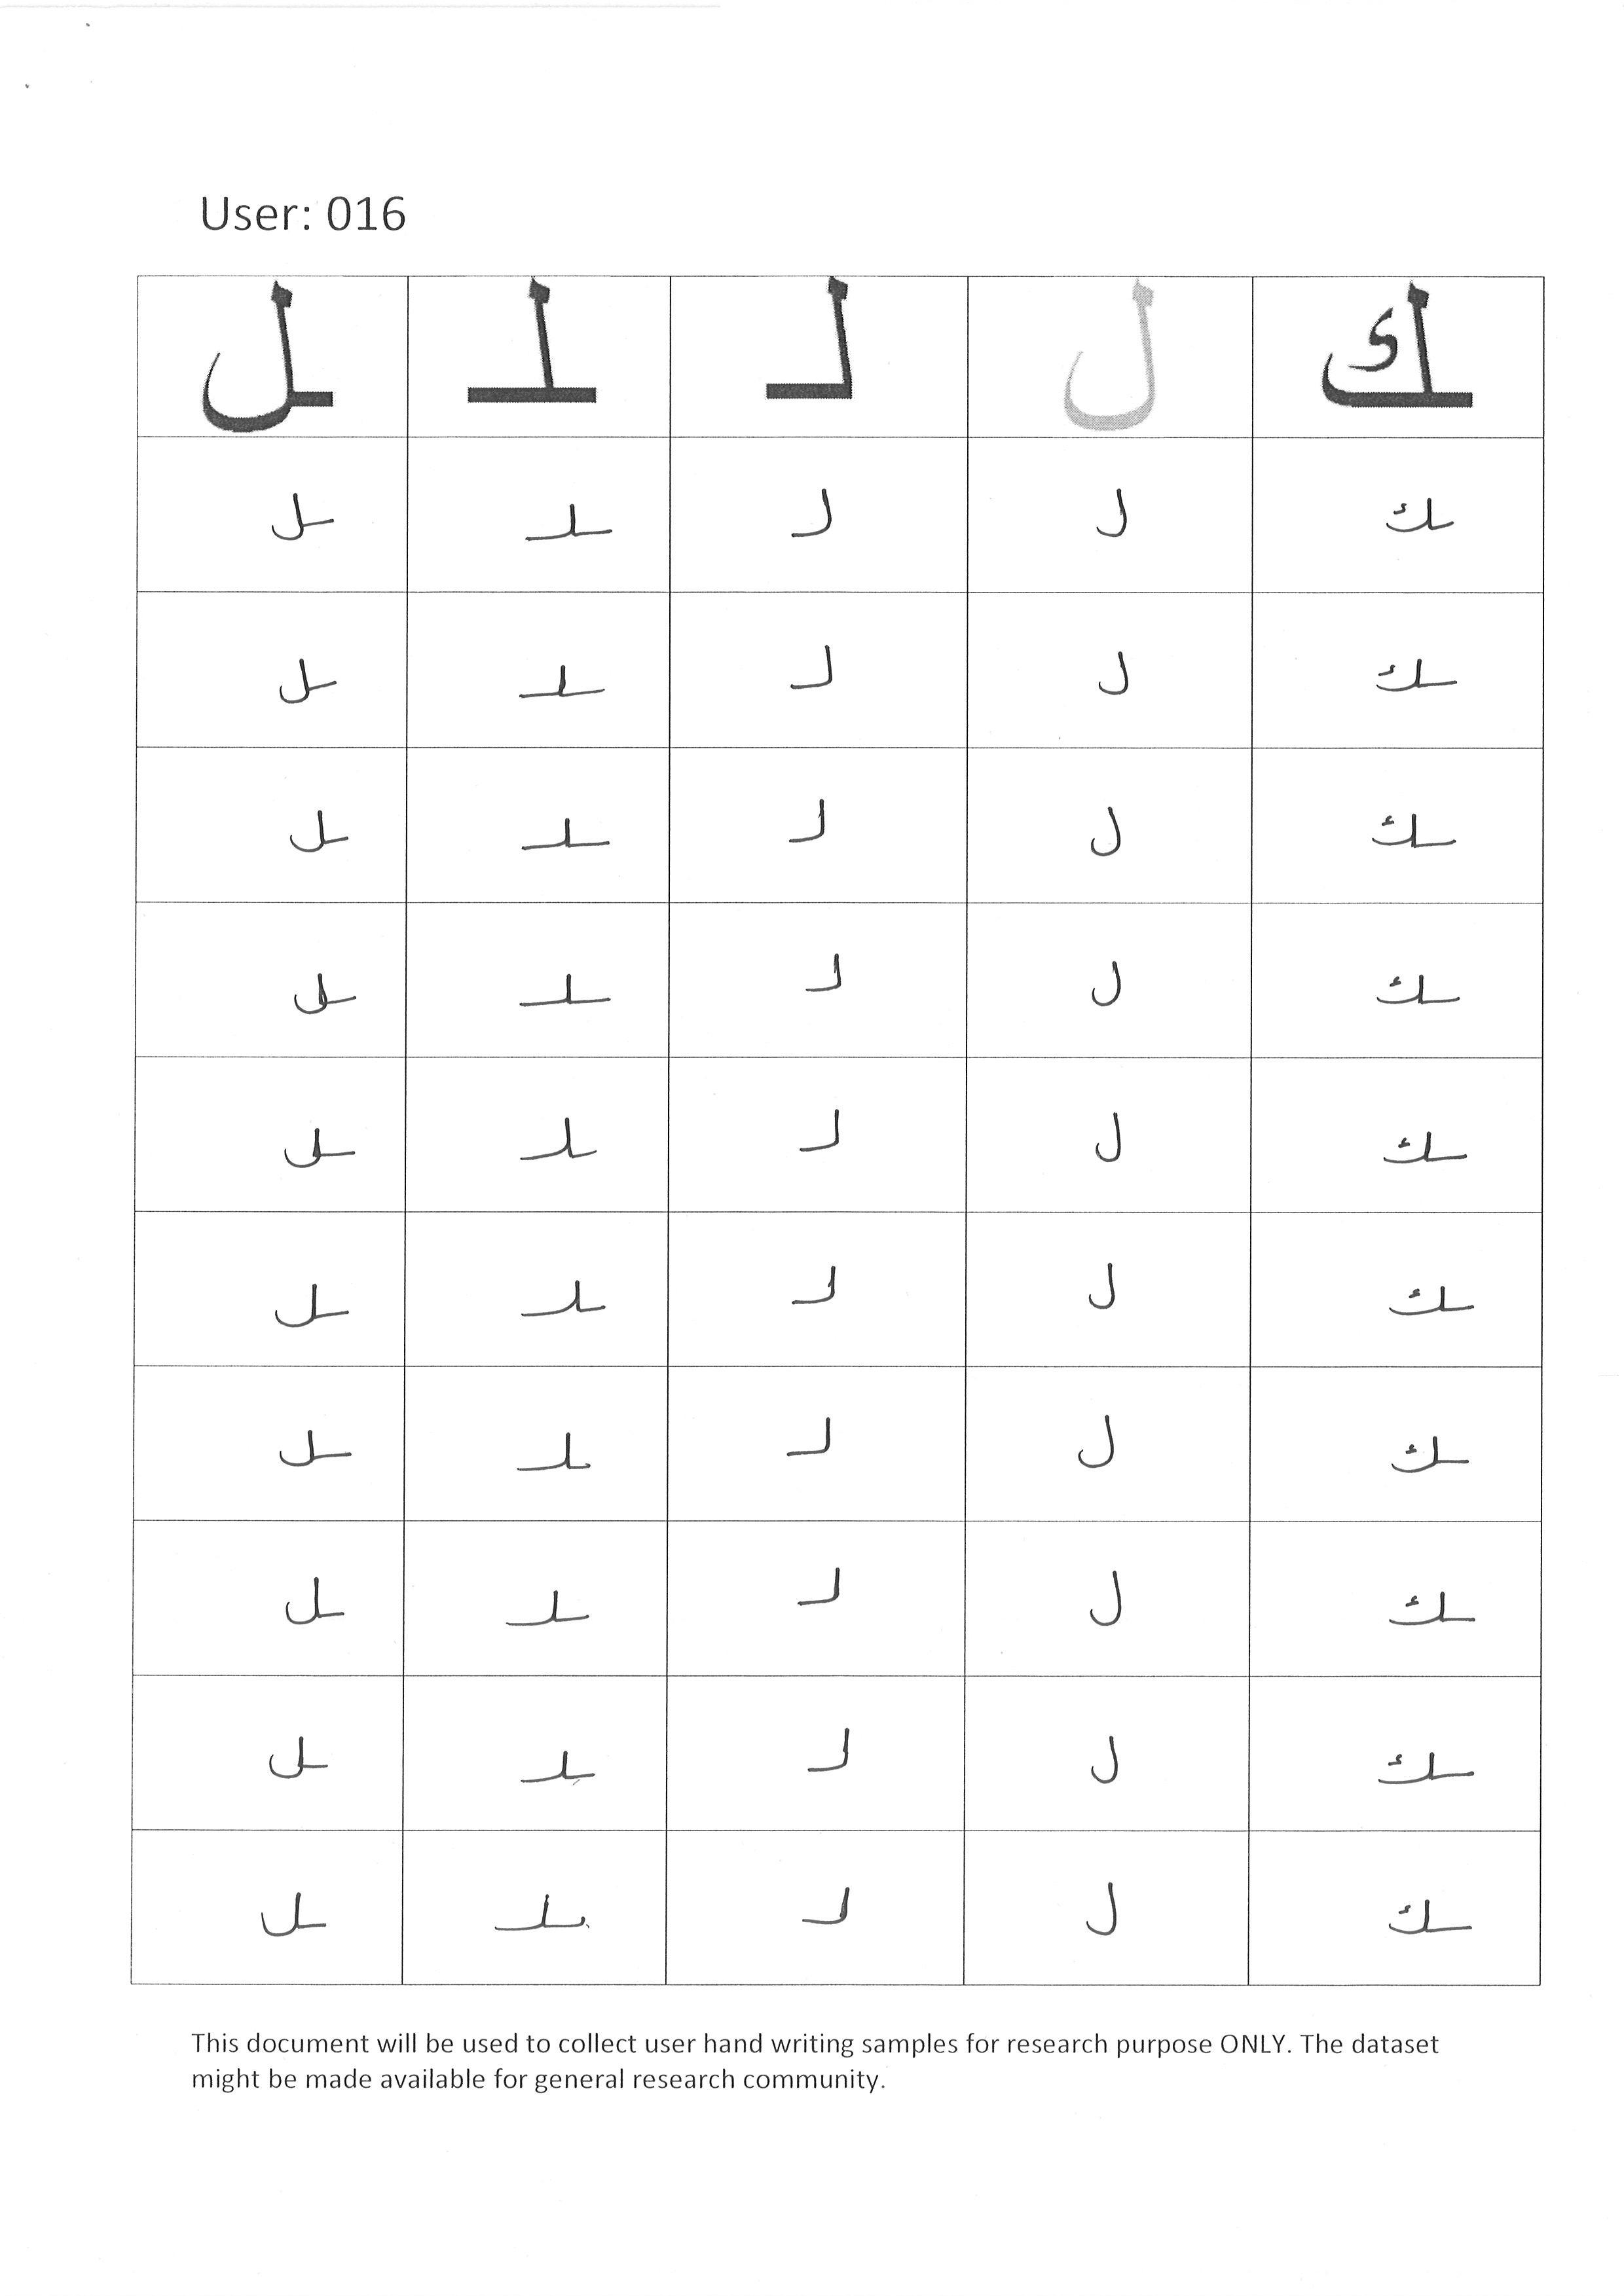 User: 016
ـل ـلـ لـ ل ـك
ـل ـلـ لـ ل ـك
ـل ـلـ لـ ل ـك
ـل ـلـ لـ ل ـك
ـل ـلـ لـ ل ـك
ـل ـلـ لـ ل ـك
ـل ـلـ لـ ل ـك
ـل ـلـ لـ ل ـك
ـل ـلـ لـ ل ـك
ـل ـلـ لـ ل ـك
ـل ـلـ لـ ل ـك
This document will be used to collect user hand writing samples for research purpose ONLY. The dataset
might be made available for general research community.